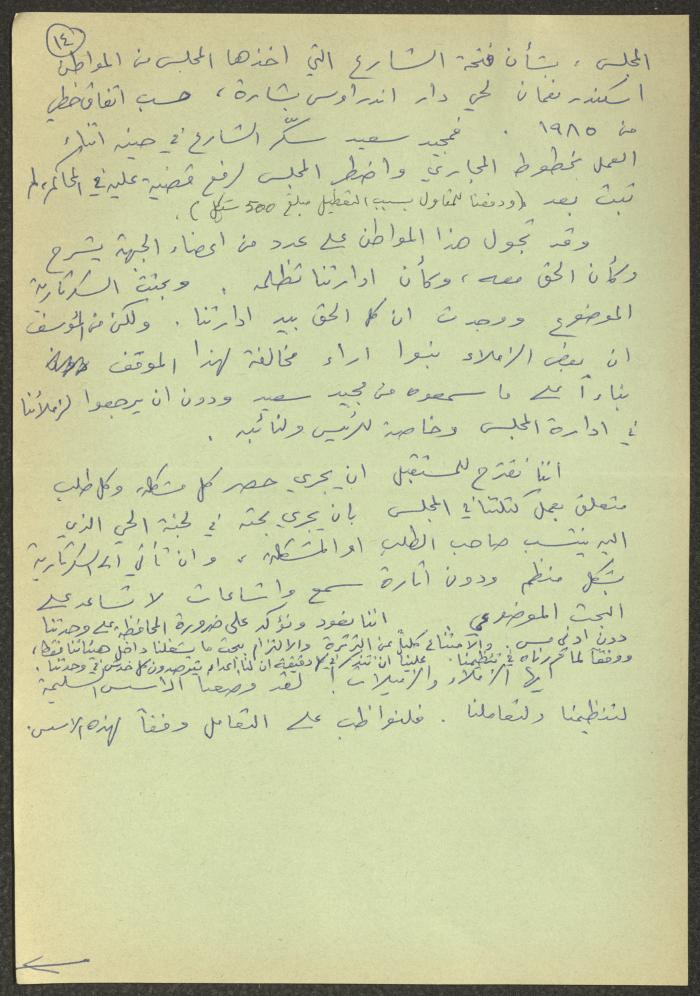 ١٤
المجلس ، بشأن فتحة الشارع التي اخذها المجلس من المواطن
اسكندر نعمان لحي دار اندراوس بشارة ، حسب اتفاق خطي
من ١٩٨٥ . فمجيد سعيد سكّر الشارع في حينه اثناء
العمل بخطوط المجاري واضطر المجلس لرفع قضية عليه في المحاكم، لم
تبت بعد (ودفعنا للمقاول بسبب التعطيل مبلغ 500 شيكل) .
وقد تجول هذا المواطن على عدد من اعضاء الجبهة يشرح
وكأن الحق معه ، وكأن ادارتنا تظلمه . وبحثت السكرتارية
الموضوع ووجدت ان كل الحق بيد ادارتنا . ولكن من المؤسف
ان بعض الزملاء تبنوا اراء مخالفة لهذا الموقف
بناءاً على ما سمعوه من مجيد سعيد ودون ان يرجعوا لزملائنا
في ادارة المجلس وخاصة للرئيس ولنائبه .
اننا نقترح للمستقبل ان يجري حصر كل مشكلة وكل طلب
متعلق بعمل كتلتنا في المجلس بان يجري بحثه في لجنة الحي الذي
اليه ينتسب صاحب الطلب او المشكلة ، وان تأتي الى السكرتارية
بشكل منظم ودون اثارة سمع واشاعات لا تساعد على
البحث الموضوعي . اننا نعود ونؤكد على ضرورة المحافظة على وحدتنا
دون ادنى مس . والامتناع كلياً عن الثرثرة والالتزام ببحث ما يشغلنا داخل هيئاتنا فقط،
ووفقاً لما قررناه في تنظيمنا . علينا ان نتذكر في كل دقيقة ان لنا اعداء يترصدون كل خدش في وحدتنا .
ايها الزملاء والزميلات ! لقد وضعنا الاسس السليمة
لتنظيمنا ولتعاملنا . فلنواظب على التعامل وفقاً لهذه الاسس.